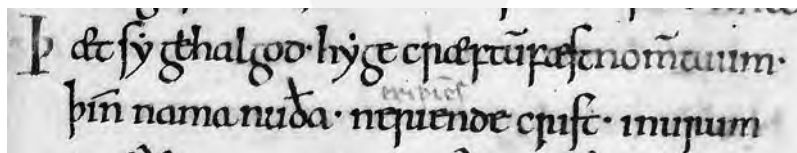 Þ æt sẏ gehalgod· hẏge cræftū fæst nom̄ tuum·
þin̄ nama nuða· neriende crist· inurum